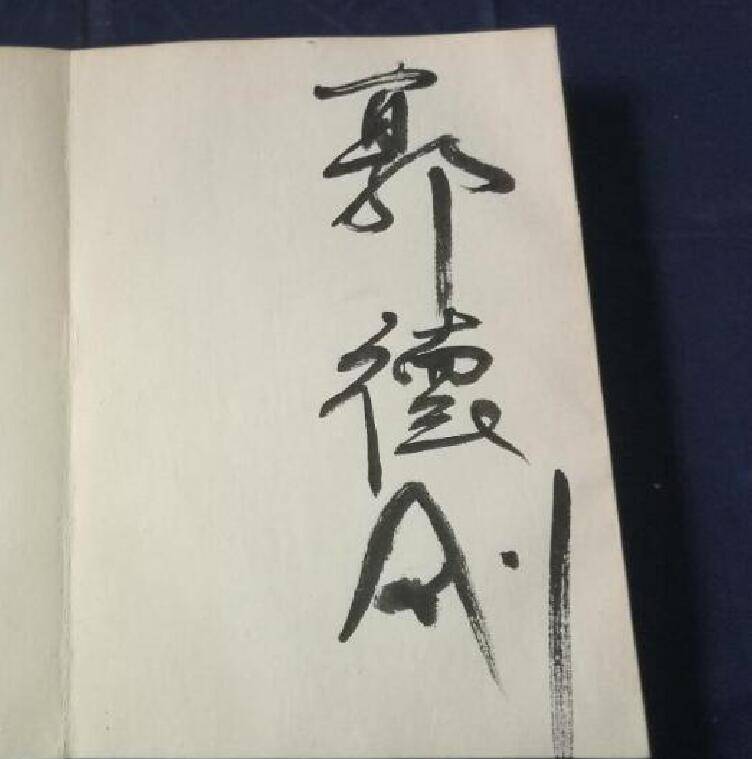 郭德剛